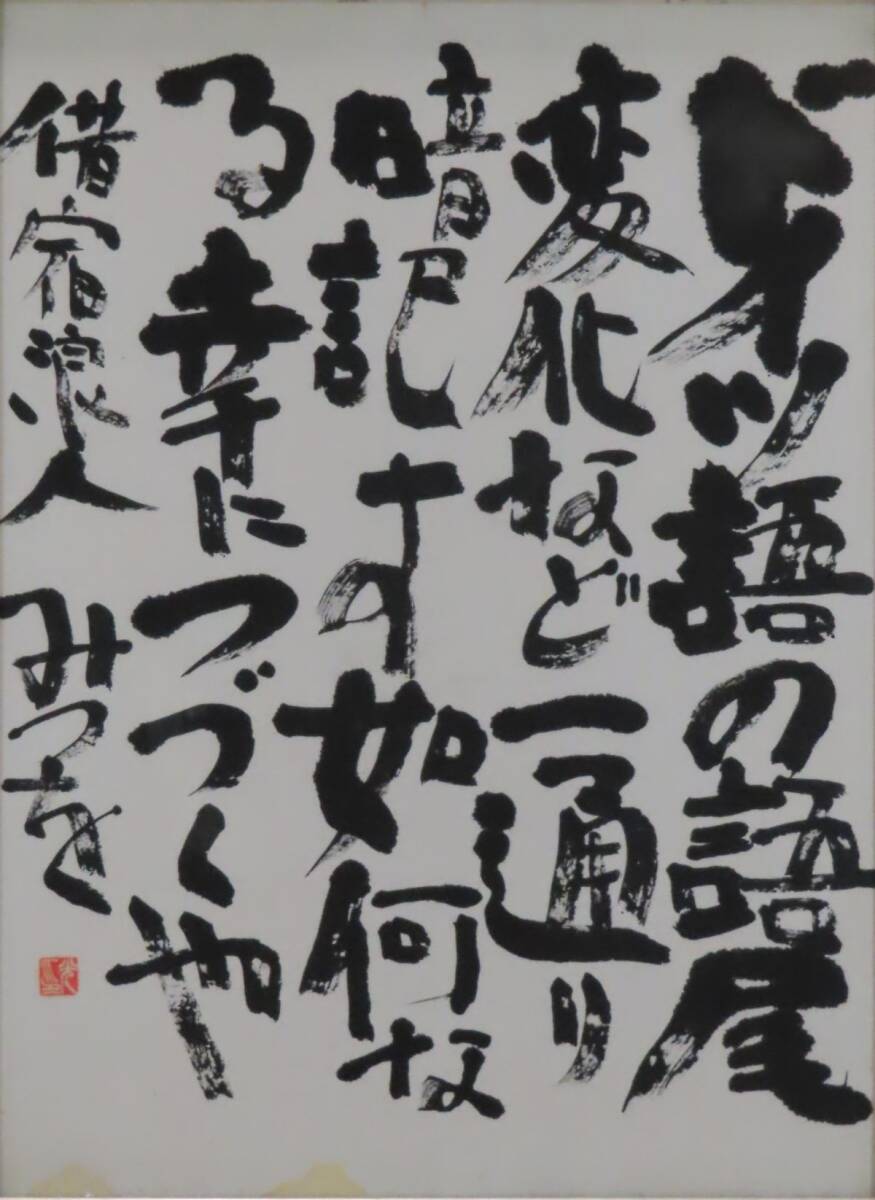 ドイツ語の語尾
変化など一通り
暗記す如何な
る幸につづくや
借宿浪人
みつを